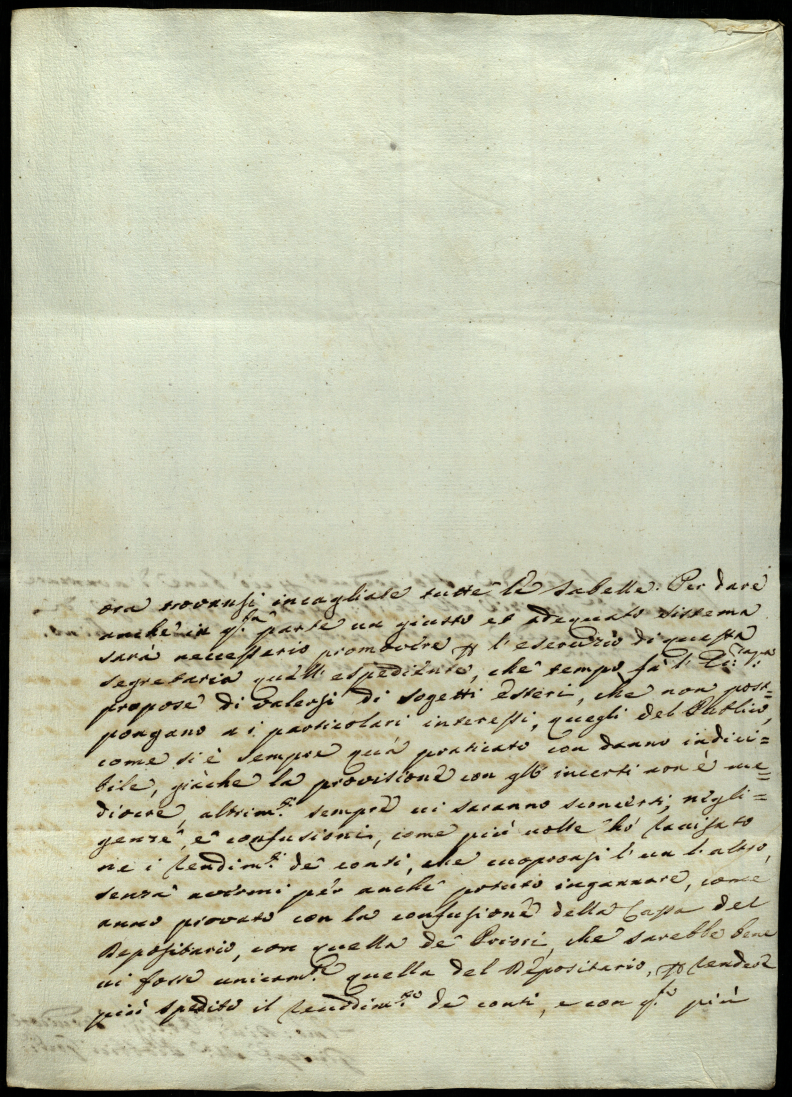 ora trovansi incagliate tutte le Tabelle. Per dare
anche in q.sta parte un giusto et adequato sistema
sarà necessario promovere p l'esercizio di questa
segretaria quell'espediente, che tempo fà l'
propose di valersi di sogetti esteri, che non post=
pongano a i particolari interessi, quegli del Publico,
come si è sempre quà praticato con danno indici=
bile, giache la provisione con gl'incerti non è me=
diocre, altrim.ti sempre vi saranno sconcerti, negli=
genze, e confusioni, come più volte hò ravisato
ne i rendim.ti de conti, che cuopronsi l'un l'altro,
senza avermi per anche potuto ingannare, come
anno provato con la confusione della Cassa del
Depositario, con quella de Priori, che sarebbe bene
vi fosse unicam.te quella del Depositario, p render
più spedito il rendim.to de conti, e con q.sto più